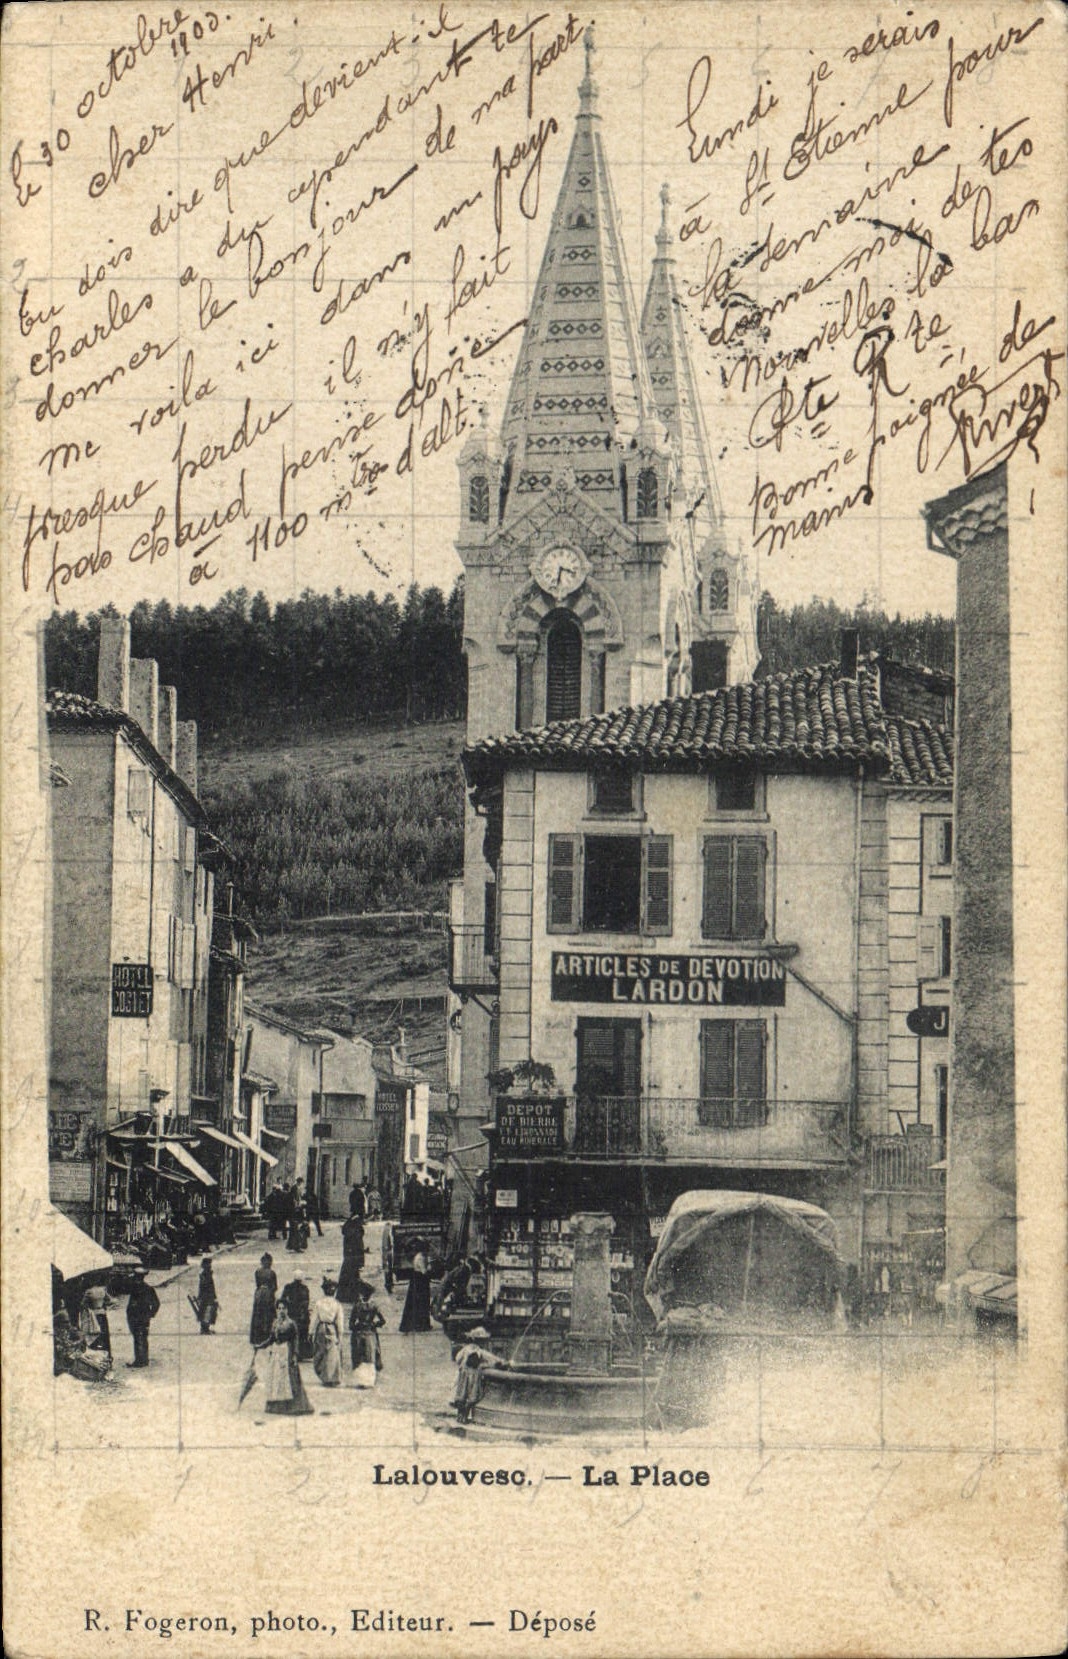 le 30 octobre
1900.
cher Henri.
tu dois dire que devient-il
charles a du cependant te
donner le bonjour de ma part.
me voila ici dans un pays
presque perdu il n'y fait
pas chaud pense donc
à 1100 mtres d'alt.
Lundi je serais
à St Etienne pour
la semaine
donne-moi de tes
nouvelles la bas
Pte Rte
bonne poignée de
mains
HOTEL
COSTET
ARTICLES DE DEVOTION
LARDON
J
DEPOT
DE BIERRE
ET LIMONADE
EAU MINERALE
HOTEL
Lalouvesc. — La Place
R. Fogeron, photo., Editeur. — Déposé